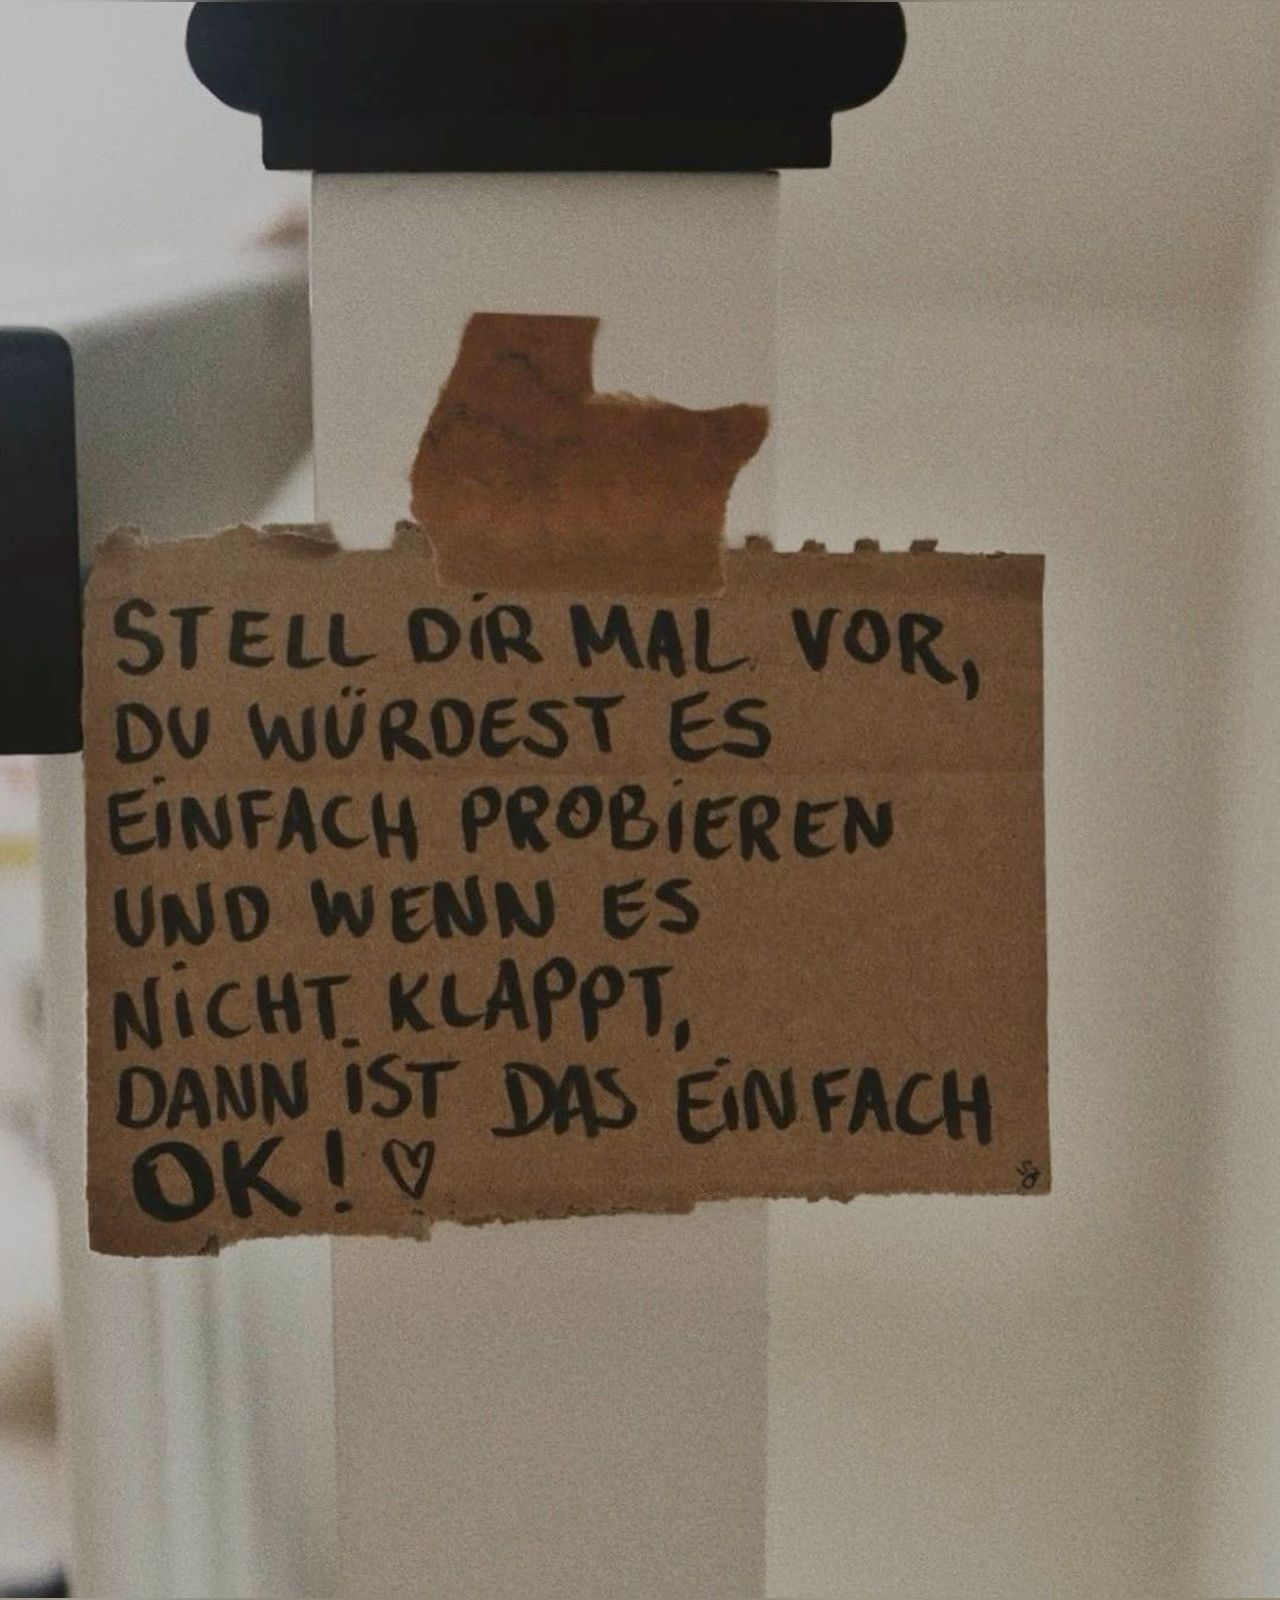 STELL DiR MAL VOR,
DU WÜRDEST ES
EiNFACH PROBiEREN
UND WENN ES
NiCHT KLAPPT,
DANN iST DAS EiNFACH
OK! ♡